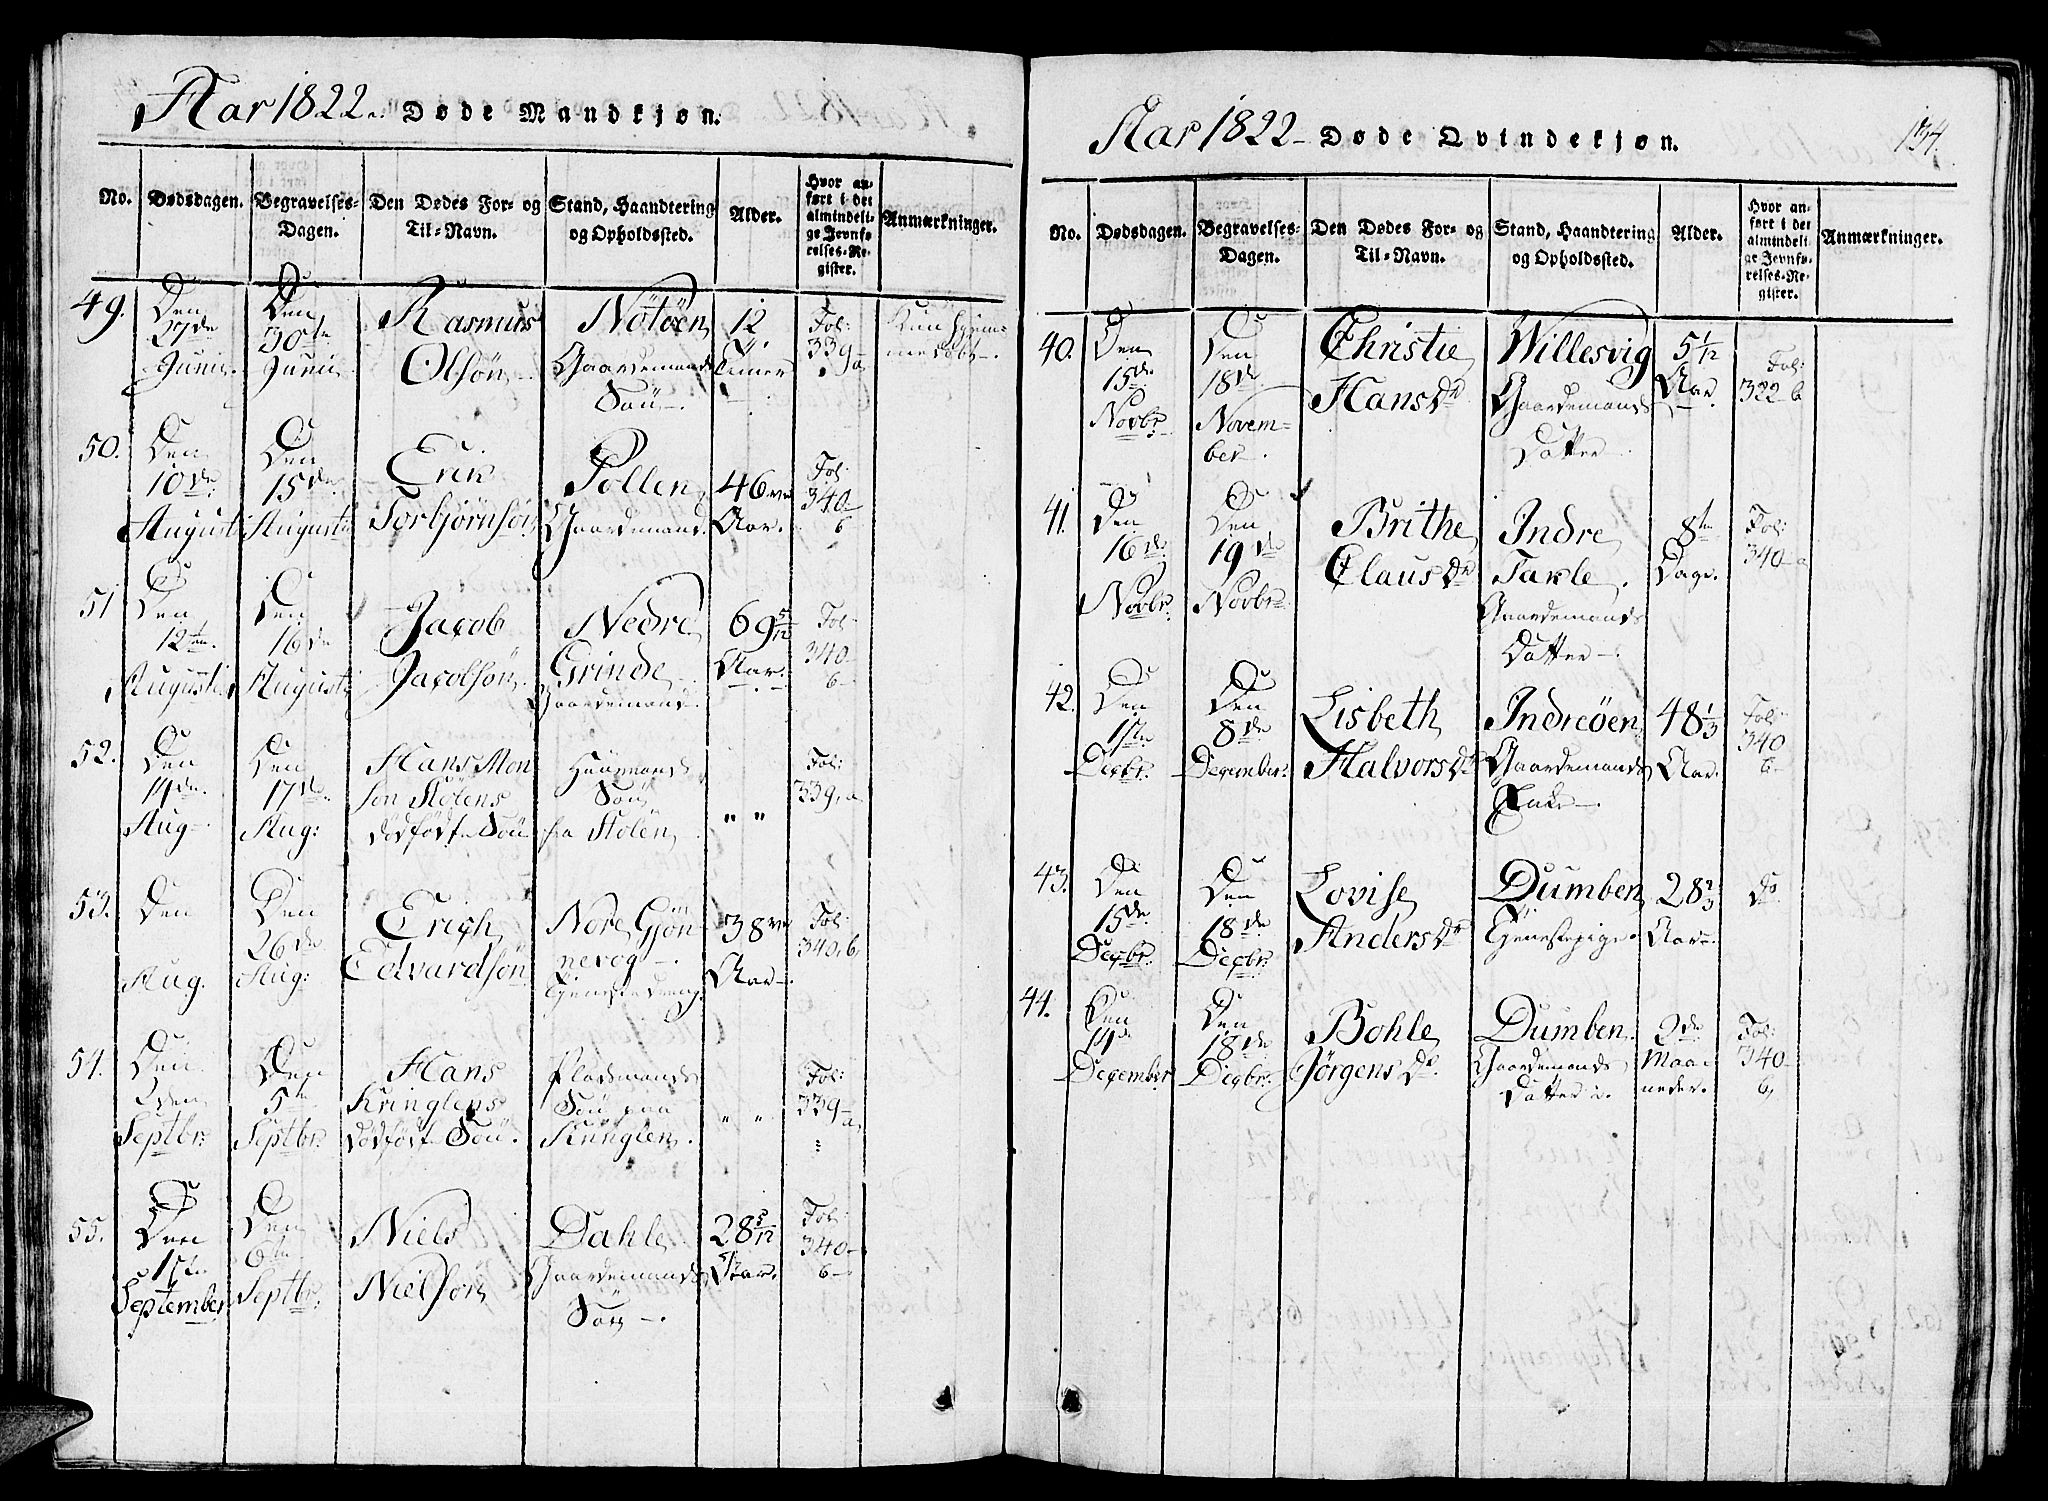 Aar 1822. Døde Mandkjøn.
No.
Dødsdagen.
Begravelses-
Dagen.
Den Dødes For- og
Til-Navn.
Stand, Haandtering
og Opholdssted.
Alder.
Hvor an-
ført i det
almindeli-
ge Jevnfø-
relses-Re-
gister.
Anmærkninger.
49.
Den
27de
Junii.
Den
30te
Junii
Rasmus
Olsön
Nötöen
Gaardemands
Sön.
12
Timer
Fol:
339 a
50.
Den
10de
Augusti
Den
15de
Augusti
Erik
Torbjörnsön
Pollen
Gaardemand.
46
Aar.
Fol:
340
b
51
Den
12te
Augusti
Den
16de
Augusti
Jacob
Jacobsön
Nedre
Grinde
Gaardemand.
69 5/12
Aar.
Fol:
340
b
52.
Den
14de
Aug.
Den
17de
Aug:
Hans Mon
son Stölens
dödfödte Sön
Huusmands
Sön
fra Stölen
" "
Fol:
339. a
53.
Den
Aug.
Den
26de
Aug:
Erich
Edvardsön
Nore Gjön
nevog
Tjenestedreng.
38
Aar
Fol:
340. b
54.
Den
Septbr:
Den
5te
Septbr:
Hans
Kringlens
dödfödte Sön.
Pladsmands
Sön paa
Kringlen.
" "
Fol:
339 a
55.
Den
1ste
September
Den
6te
Septbr:
Niels
Nielsön
Dahle
Gaardemands
Sön
28 5/12
Aar.
Fol:
340
b
Aar 1822 Døde Qvindekjøn.
134.
No.
Dødsdagen.
Begravelses-
Dagen.
Den Dødes For- og
Til-Navn.
Stand, Haandtering
og Opholdssted.
Alder.
Hvor an-
ført i det
almindeli-
ge Jevnfø-
relses-Re-
gister.
Anmærkninger.
40.
Den
15de
Novbr.
Den
18de
Novem-
ber.
Christie
Hans Dr
Willesvig
Gaardemands
Datter
5 1/12
Aar.
Fol:
322 b
41.
Den
16de
Novbr.
Den
19de
Novbr
Brithe
Claus Dr
Indre
Takle.
Gaardemands
Datter
8te
Dage.
Fol:
340 a
42.
Den
1ste
Decbr.
Den
8de
December.
Lisbeth
Halvors Dr
Indreöen
Gaardemands
Enke
48 1/3
Aar.
Fol:
340
b
43.
Den
15de
Decbr.
Den
18de
Decbr:
Lovise
Anders Dr
Dumben
Tjenestepige
28 2/3
Aar
do
44.
Den
14de
December
Den
18de
Decbr:
Bohle
Jörgens Dr.
Dumben
Gaardemands
Datter
Maa-
neder.
Fol:
340
b